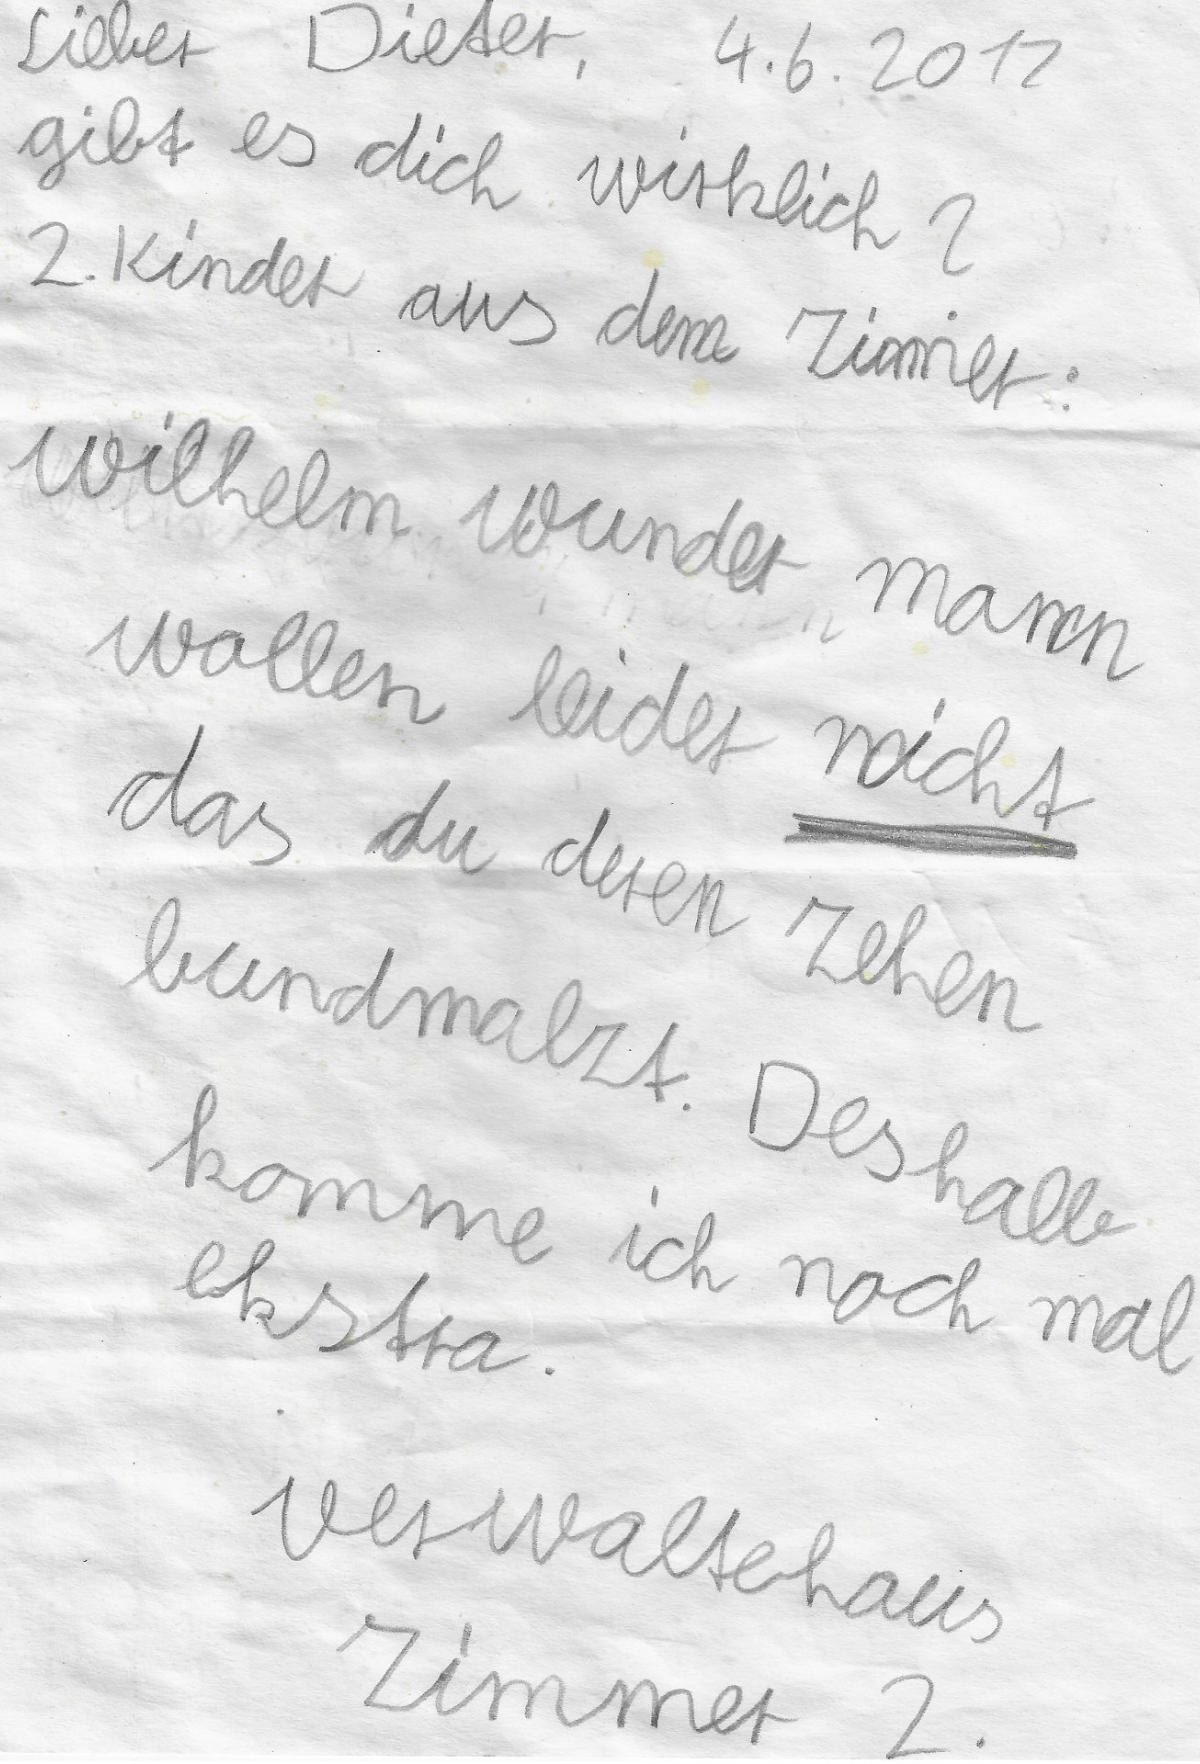 Lieber Dieter, 4.6.2012
gibt es dich wirklich?
2. Kinder aus dem Zimmer:
Wilhelm Wunder mann
wollen leider nicht
das du deren Zehen
bundmalzt. Deshalb
komme ich noch mal
ekstra.
Verwaltehaus
Zimmer 2.